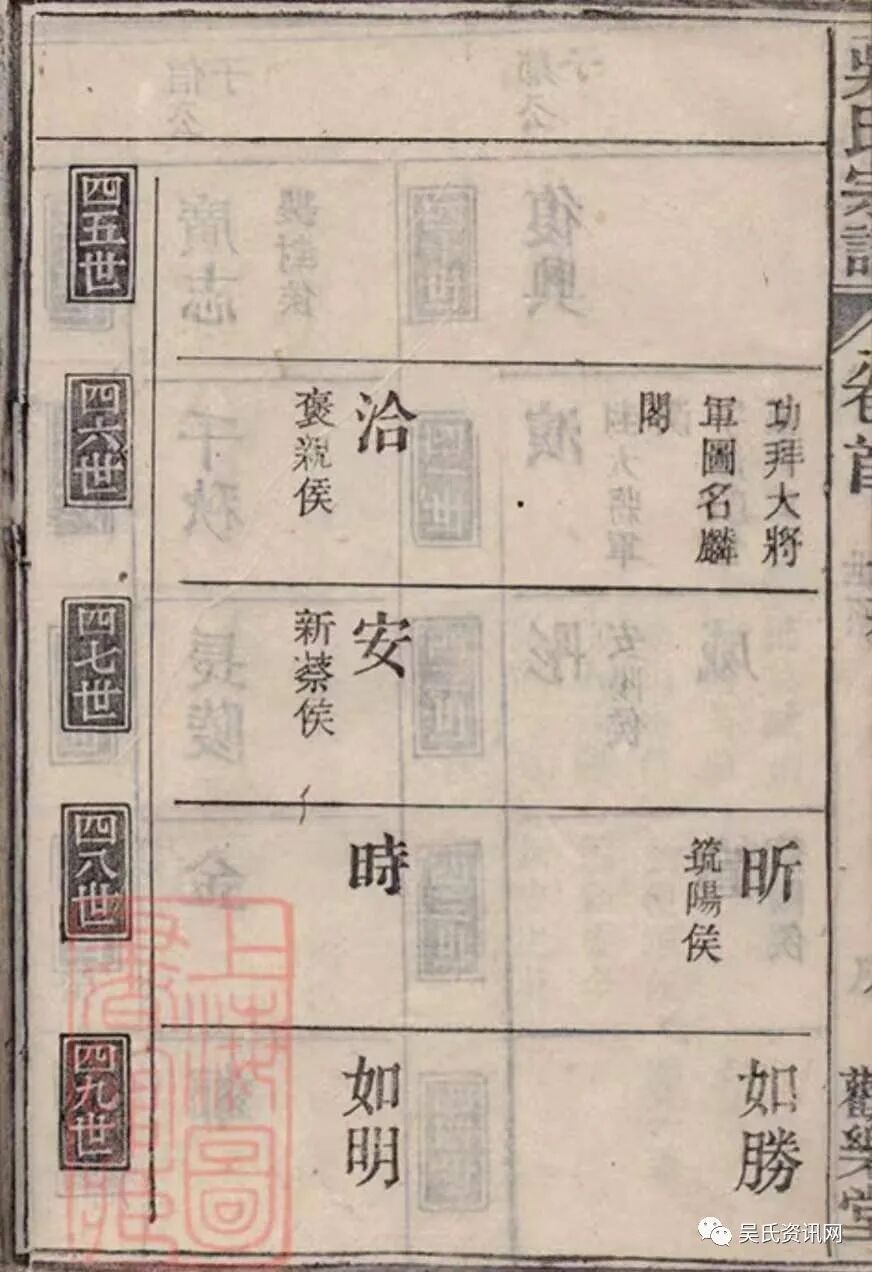 吳氏宗譜
卷首
觀樂堂
四五世
四六世
功拜大將
軍圖名麟
閣
洽
褒親侯
四七世
安
新蔡侯
四八世
昕
筑陽侯
時
四九世
如勝
如明
上海圖
吴氏资讯网